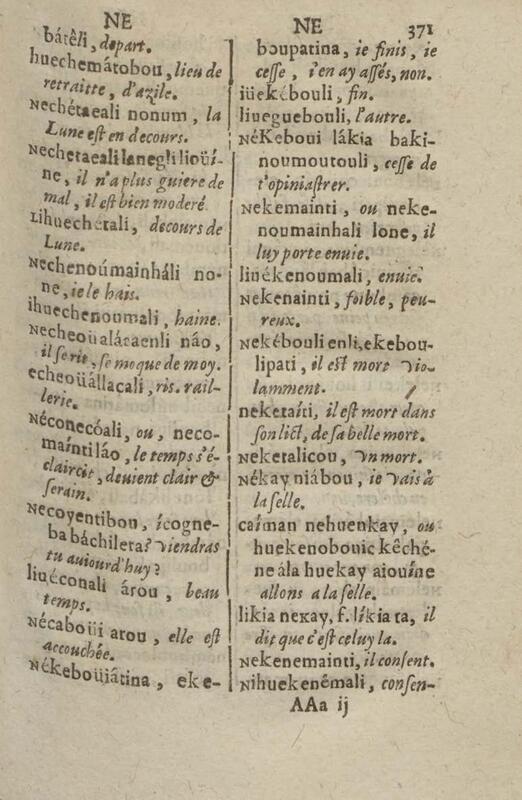 NE
bátêli, depart.
huechemátobou, lieu de
retraitte, d'azile.
Nechétaeali nonum, la
Lune est en decours.
Nechetaeali lanegli lioüí-
ne, il n'a plus guiere de
mal, il est bien moderé.
Lihuechétali, decours de
Lune.
Nechenoúmainháli no-
ne, ie le hais.
ihuechenoumali, haine.
Necheoüalácaenli náo,
il se rit, se moque de moy.
echeoüállacali, ris. rail-
lerie.
Néconecóali, ou, neco-
maíntiláo, le temps s'é-
claircit, deuient clair &
serain.
Necoyentibou, ícogne-
ba báchilera? viendras
tu auiourd'huy?
liuéconali árou, beau
temps.
Nécaboüi arou, elle est
accouchée.
Nékeboüiátina, eke-
NE 371
boupatina, ie finis, ie
cesse, i'en ay assés, non.
iüekébouli, fin.
liueguebouli, l'autre.
NéKeboui lákia baki-
noumoutouli, cesse de
t'opiniastrer.
Nekemainti, ou neke-
noumainhali lone, il
luy porte enuie.
liuékenoumali, enuie.
Nekenainti, foible, peu-
reux.
Nekébouli enli, ekebou-
lipati, il est mort vio-
lamment.
neketaíti, il est mort dans
son lict, de sa belle mort.
Neketalicou, vn mort.
Nékay niábou, ie vais à
la selle.
caíman nehuenkay, ou
huekenobouic kêché-
ne ála huekay aiouíne
allons a la selle.
likia nexay, f. líkia ta, il
dit que c'est celuy la.
Nekenemainti, il consent.
Nihuekenêmali, consen-
AAa ij